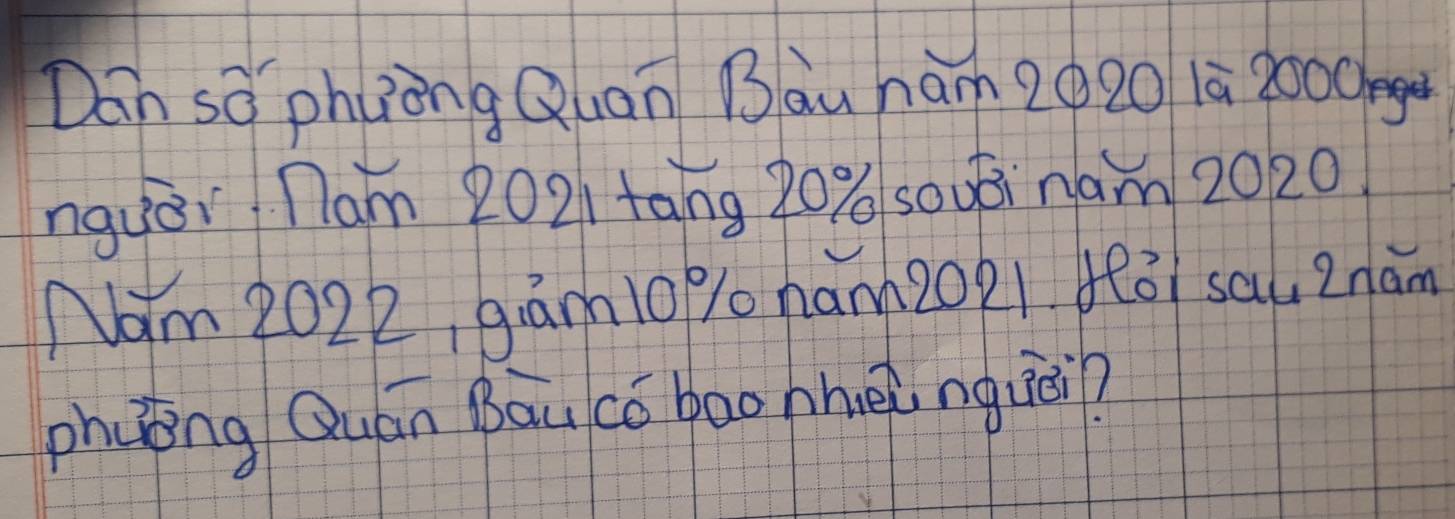 Dân số phường Quán Bàu năm 2020 là 2000
người. Năm 2021 tăng 20% so với năm 2020.
Năm 2022, giảm 10% năm 2021. Hỏi sau 2 năm
phường Quán Bàu có bao nhiêu người?